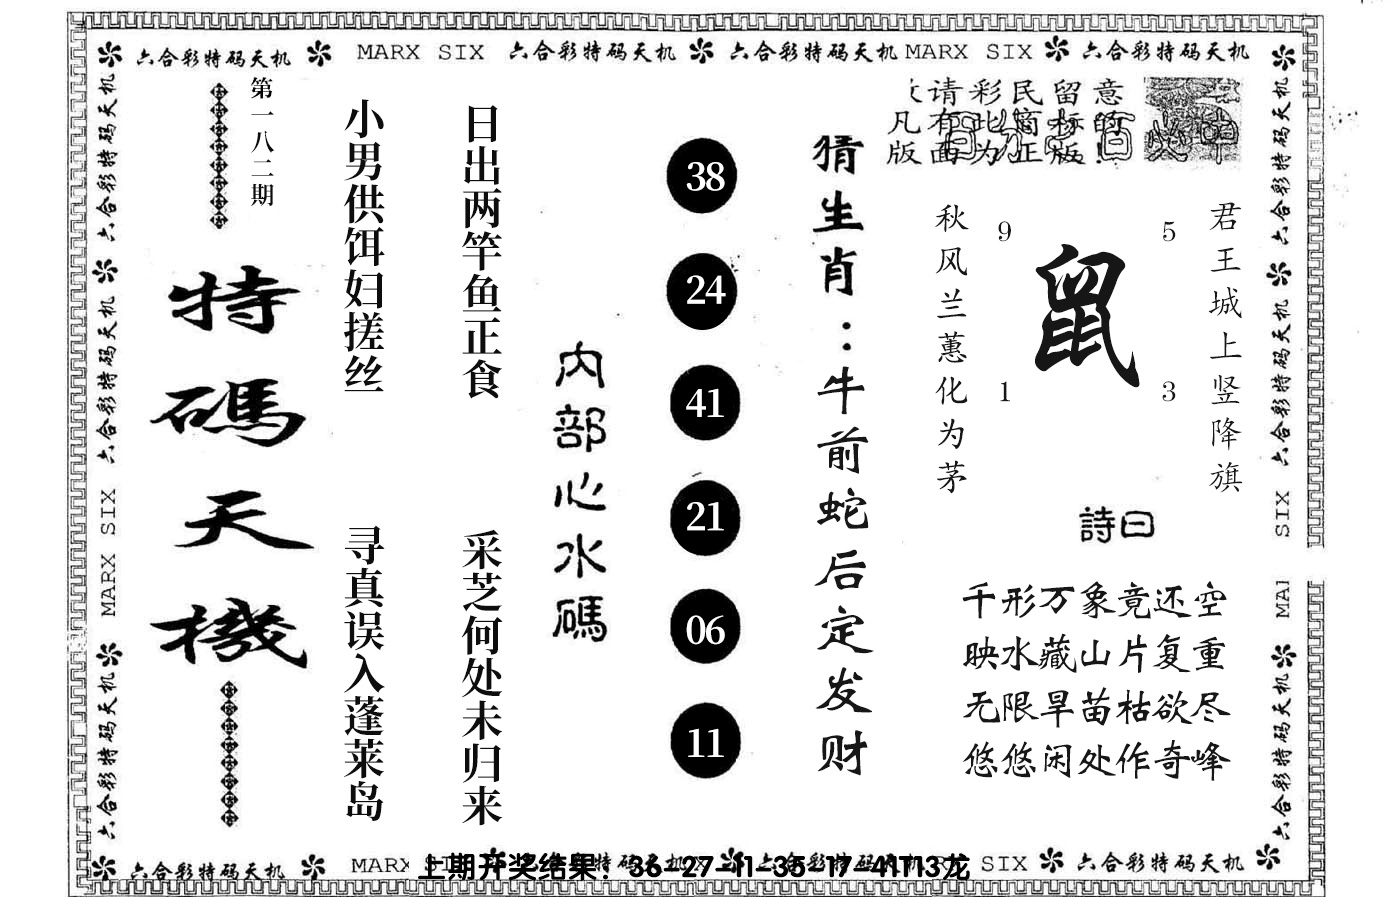 六合彩特码天机 MARX SIX 六合彩特码天机 六合彩特码天机 MARX SIX 六合彩特码天机
第一八二期
特碼天機
小男供饵妇搓丝
寻真误入蓬莱岛
日出两竿鱼正食
采芝何处未归来
内部心水碼
38
24
41
21
06
11
猜生肖：牛前蛇后定发财
请彩民留意
凡有此窗标的
版面为正版!
君王城上竖降旗
秋风兰蕙化为茅
9
5
鼠
1
3
詩曰
千形万象竟还空
映水藏山片复重
无限旱苗枯欲尽
悠悠闲处作奇峰
六合彩特码天机 六合彩特码天机 MARX SIX 六合彩特码天机
六合彩特码天机 六合彩特码天机 SIX MAR 六合彩特码天机
六合彩特码天机 MARX SIX 六合彩特码天机
上期开奖结果：36-27-11-35-17-41T13龙